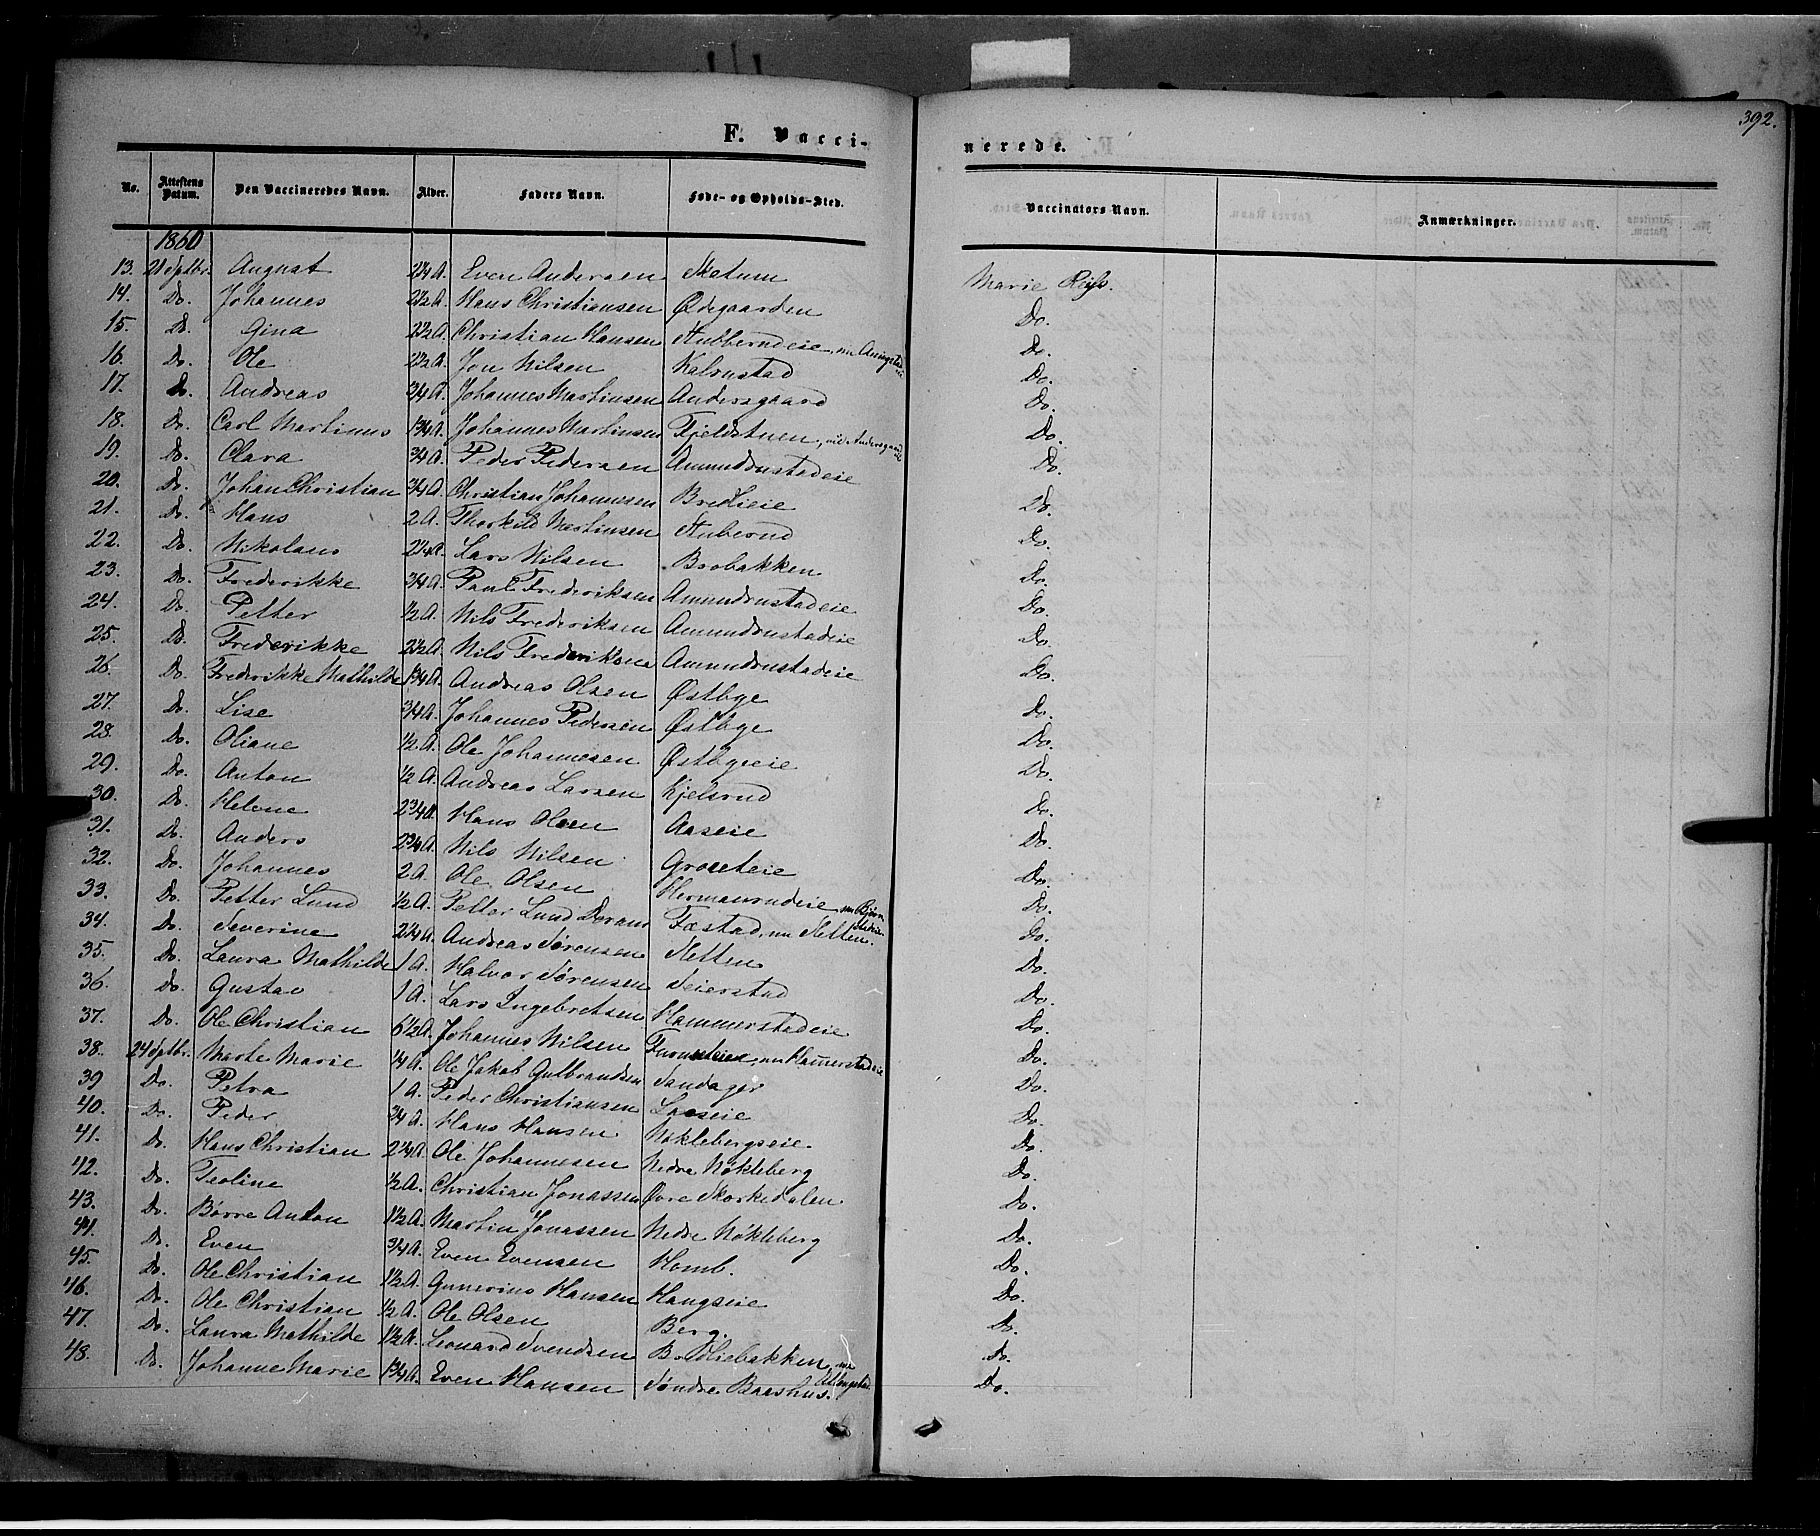 392.
F. Vacci-
nerede.
No. Attestens Datum. Den Vaccineredes Navn. Alder. Faders Navn. Føde- og Opholds-Sted. Vaccinators Navn. Anmærkninger.
1860
13. 21 Sptbr. August 2¼ A. Even Andersen Marie
14. Do. Johannes 2½ A. Hans Christiansen Ødegaarden Do.
15. D. Gina 2½ A. Christian Hansen Stubberudeie, nu Do.
16. Do. Ole 2½ A. Jon Nilsen Kalrustad Do.
17. Do. Andreas ¾ A. Johannes Martinsen Andersgaard Do.
18. Do. Carl Martinus 1¾ A. Johannes Martinsen Fjeldstuen, ved Andersgaard Do.
19. Do. Clara ¾ A. Peder Pedersen Amundrustadeie Do.
20. Do. Johan Christian ¾ A. Christian Johannesen Bredlieie Do.
21. Do. Hans 2 A. Thorkild Martinsen Stuberud Do.
22. Do. Nikolaus 2¼ A. Lars Nilsen Brobakken Do.
23. Do. Frederikke ¾ A. Paul Frederiksen Amundrustadeie Do.
24. Do. Petter ½ A. Nils Frederiksen Amundrustadeie Do.
25. Do. Frederikke 2½ A. Nils Frederiksen Amundrustadeie Do.
26. Do. Frederikke Mathilde 1¾ A. Andreas Olsen Østbye Do.
27. Do. Lise ¾ A. Johannes Pedersen Østbye Do.
28. Do. Oliane ½ A. Ole Johannesen Østbyeeie Do.
29. Do. Anton ½ A. Andreas Larsen Kjelsrud Do.
30. Do. Helene 2¾ A. Hans Olsen Aaseie Do.
31. Do. Anders 2¾ A. Nils Nilsen Groseteie Do.
32. Do. Johannes 2 A. Ole Olsen Hermansrudeie, nu Do.
33. Do. Petter Lund ½ A. Petter Lund Fæstad, nu Sletten. Do.
34. Do. Severine 2¼ A. Andreas Sørensen Sletten Do.
35. Do. Laura Mathilde 1 A. Halvor Sørensen Seierstad Do.
36. Do. Gustav 1 A. Lars Ingebretsen Hammerstadeie Do.
37. Do. Ole Christian 6½ A. Johannes Nilsen nu Hammerstadeie Do.
38. 24 Sptbr. Marte Marie ¼ A. Ole Jakob Gulbrandsen Sandager Do.
39 Do. Petra 1 A. Peder Christiansen Laaseie Do.
40. Do. Peder ¾ A. Hans Hansen Nøklebergseie. Do.
41. D. Hans Christian 2¼ A. Ole Johannesen Nedre Nøkleberg Do.
42. Do. Teoline ½ A. Christian Jonassen Øvre Skorkedalen Do.
43. Do. Børre Anton 1½ A. Martin Jonassen Nedre Nøkleberg Do.
44. Do. Even ¾ A. Even Evensen Homb. Do.
45. Do. Ole Christian 1½ A. Gunerius Hansen Haugseie Do.
46. Do. Ole Christian ½ A. Ole Olsen Berg. Do.
47. Do. Laura Mathilde 1½ A. Leonard Svendsen Bredliebakken, nu Do.
48. Do. Johanne Marie 1¾ A. Even Hansen Søndre Baashus. Do.